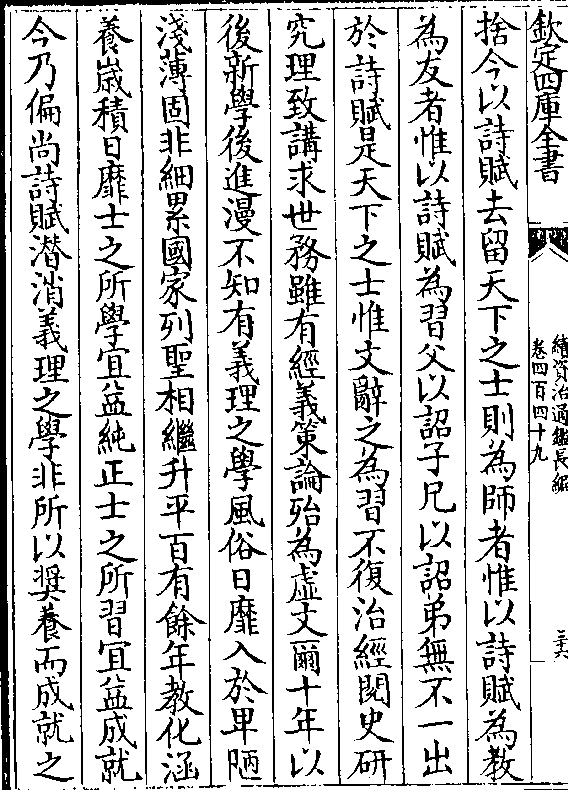 欽定四庫全書
續資治通鑑長編
卷四百四十九
三六
捨今以詩賦去留天下之士則為師者惟以詩賦為教
為友者惟以詩賦為習父以詔子兄以詔弟無不一出
於詩賦是天下之士惟文辭之為習不復治經閱史研
究理致講求世務雖有經義策論殆為虛文爾十年以
後新學後進漫不知有義理之學風俗日靡入於卑陋
淺薄固非細累國家列聖相繼升平百有餘年教化涵
養嵗積日靡士之所學宜益純正士之所習宜益成就
今乃偏尚詩賦潛消義理之學非所以奨養而成就之